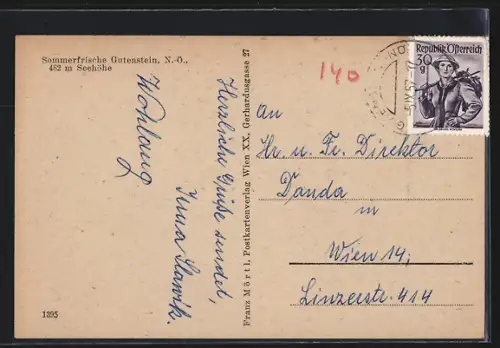 Sommerfrische Gutenstein, N.-Ö.,
482 m Seehöhe
Herzliche Grüße sendet,
Franz Mörtl, Postkartenverlag Wien XX, Gerhardusgasse 27
140
Republik Österreich
30
g
An
Hr. u. Fr. Direktor
Danda
in
Wien 14;
Linzerstr. 414
1395